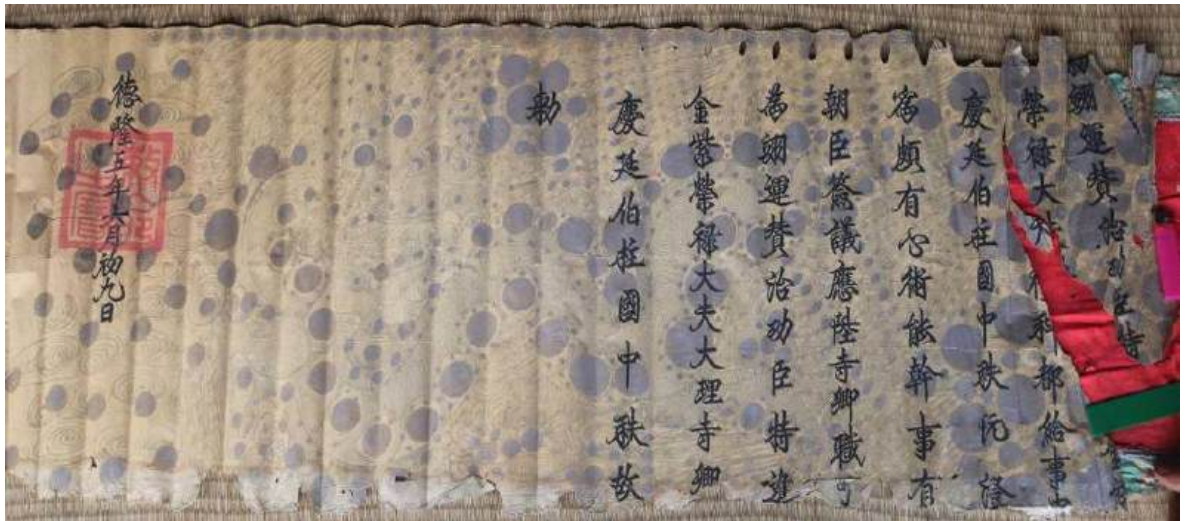 翊運贊治功臣特
榮祿大夫科都給事中
慶廷伯柱國中秩阮澄
為頗有心術能幹事有
朝臣簽議應陞寺卿職可
為翊運贊治功臣特進
金紫榮祿大夫大理寺卿
慶廷伯柱國中秩故
勅
德隆五年六月初九日